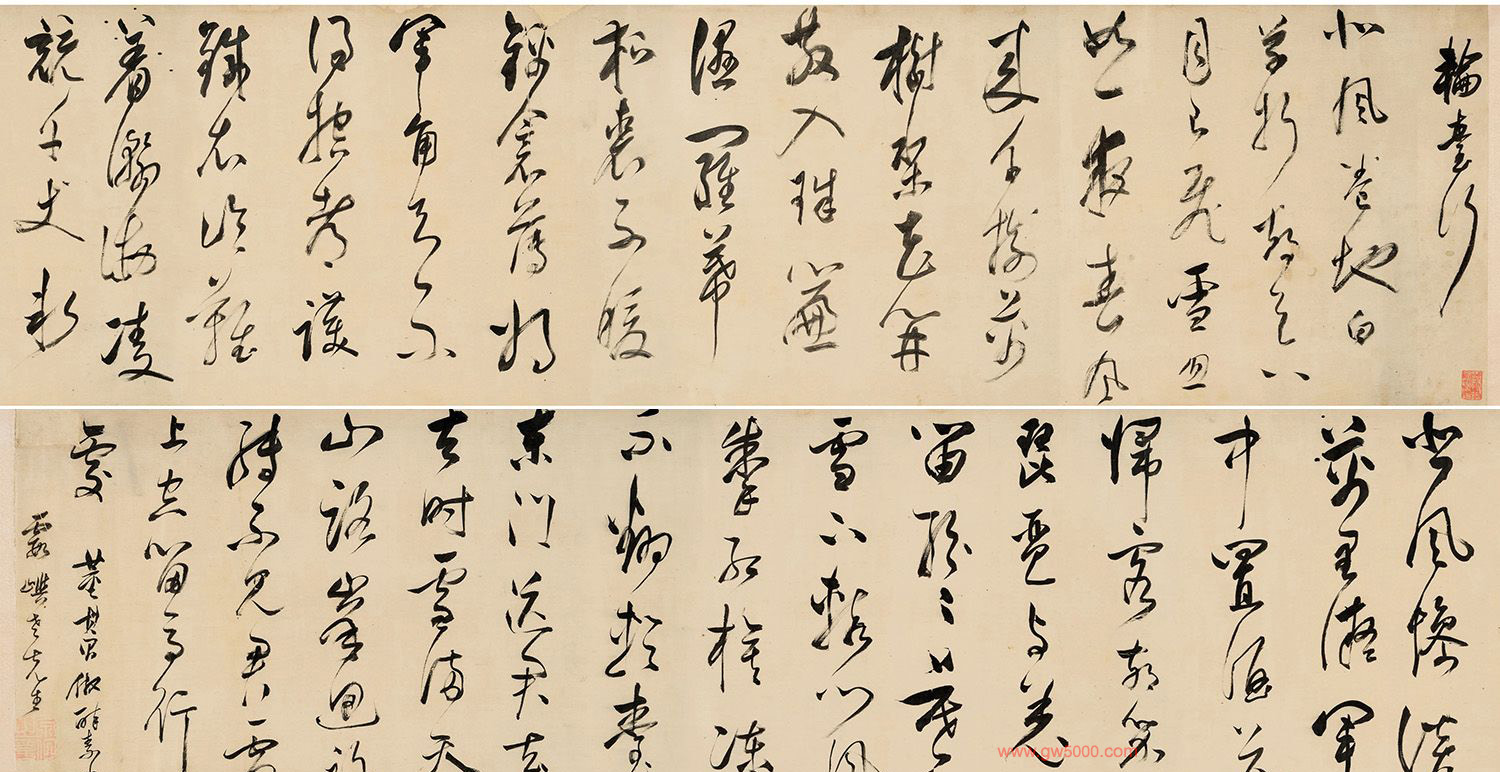 輪臺行
北風卷地白
草折胡天八
月已飛雪忽
如一夜春風
來千樹萬
樹梨花開
散入珠簾
濕羅幕
狐裘不暖
錦衾薄將
軍角弓不
得控都護
鐵衣冷難
著瀚海凌
競千丈
悲風慘淡
萬里凝軍
中置酒飲
歸客胡琴
琵琶與羌
笛紛紛暮
雪下轅門風
掣紅旗凍
不翻輪臺
東門送君去
去時雪滿天
山路山迴路
轉不見君雪
上空留馬行
處
董其昌倣醉素
霞嶼老先生
www.gw5000.com